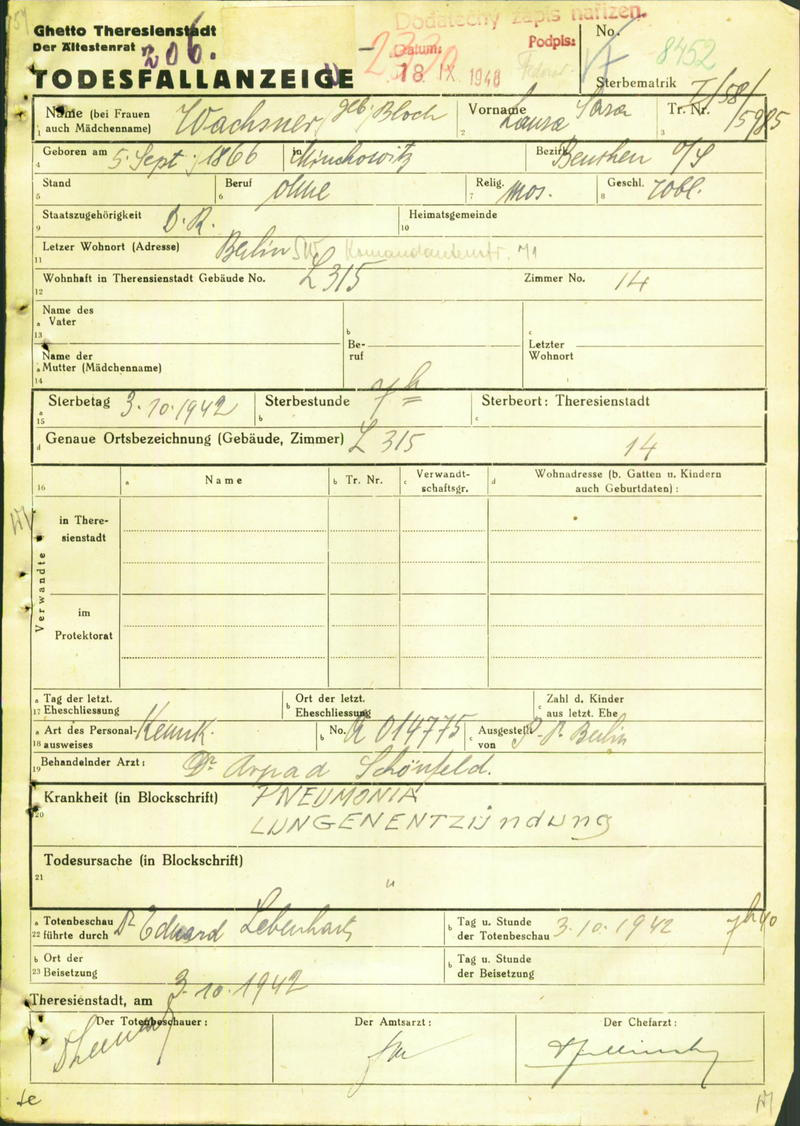 Ghetto Theresienstadt
Der Ältestenrat
206.
Dodatečný zápis nařízen.
Datum: 18 IX. 1948
Podpis:
No.
8452
TODESFALLANZEIGE
Sterbematrik
Name (bei Frauen auch Mädchenname) Wachsner, geb. Bloch
Vorname Laura Sara
Tr. Nr. I/58/5985
1 2 3
Geboren am 5. Sept. 1866 in Minchowitz Bezirk Beuthen O/S
4
Stand Beruf ohne Relig. mos. Geschl. weibl.
5 6 7 8
Staatszugehörigkeit D.R. Heimatsgemeinde
9 10
Letzer Wohnort (Adresse) Berlin SW Komandantenstr. 71
11
Wohnhaft in Therensienstadt Gebäude No. L 315 Zimmer No. 14
12
Name des Vater
a 13
b Beruf
c Letzter Wohnort
Name der Mutter (Mädchenname)
a 14
a 15 Sterbetag 3.10.1942 b Sterbestunde 7h c Sterbeort: Theresienstadt
d Genaue Ortsbezeichnung (Gebäude, Zimmer) L 315 14
16 a Name b Tr. Nr. c Verwandtschaftsgr. d Wohnadresse (b. Gatten u. Kindern auch Geburtdaten):
Verwandte
in Theresienstadt
im Protektorat
a 17 Tag der letzt. Eheschliessung b Ort der letzt. Eheschliessung c Zahl d. Kinder aus letzt. Ehe
a 18 Art des Personalausweises Kennk. b No. A 014775 c Ausgestellt von P.P. Berlin
19 Behandelnder Arzt: Dr Arpad Schönfeld.
20 Krankheit (in Blockschrift) PNEUMONIA
LUNGENENTZÜndung
Todesursache (in Blockschrift)
21 "
a 22 Totenbeschau führte durch Dr Eduard Lebenhart b Tag u. Stunde der Totenbeschau 3.10.1942 7h40
b 23 Ort der Beisetzung b Tag u. Stunde der Beisetzung
Theresienstadt, am 3.10.1942
Der Totenbeschauer: Der Amtsarzt: Der Chefarzt: